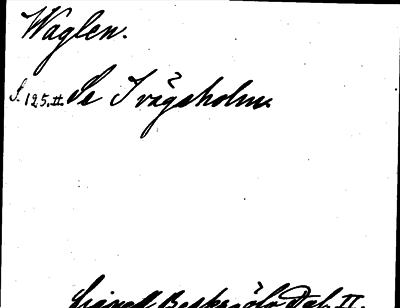 Waglen.
S. 125. II. Se Ivägsholm.
Lignell Beskr. öfv. Dal. II.